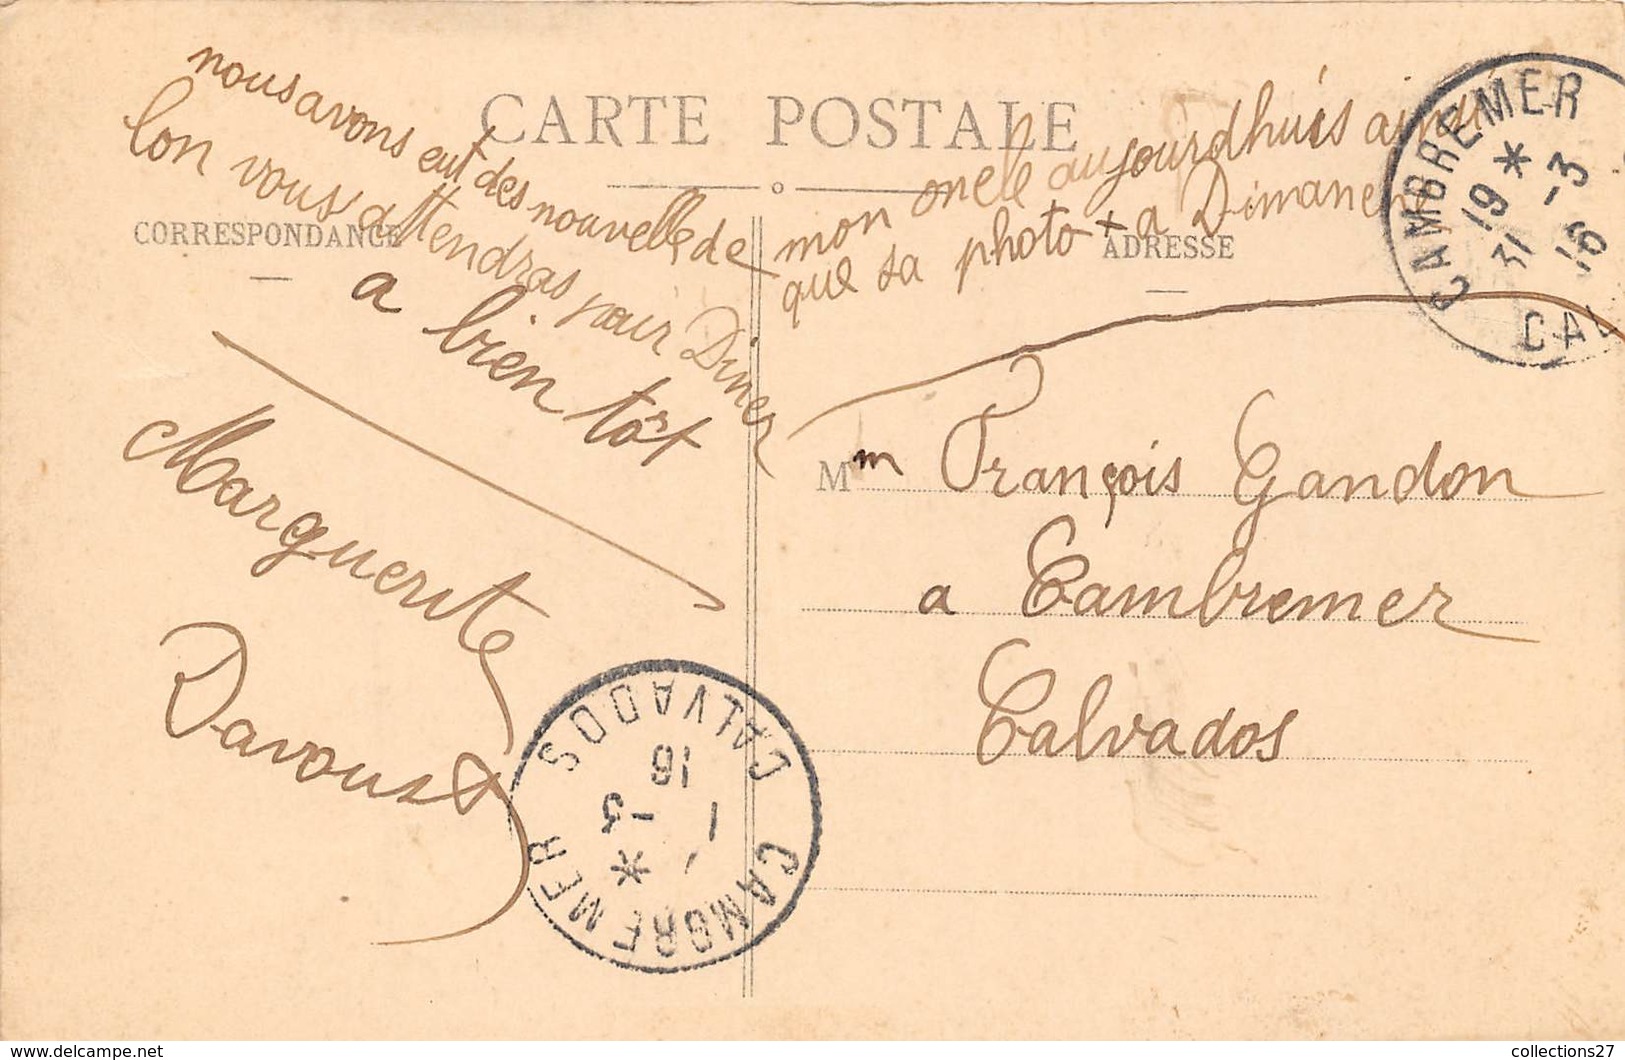 CARTE POSTALE
CORRESPONDANCE
ADRESSE
nous avons eut des nouvelle de mon oncle aujourdhuis ainsi
que sa photo + a Dimanche
lon vous attendras pour Diner
a bien tôt
Marguerite
Davoust
Mm François Gandon
a Cambremer
Calvados
CAMBREMER
19 *
31 -3
16
CAL
CAMBREMER
*
1 -3
16
CALVADOS
https://www.delcampe.net
collections27